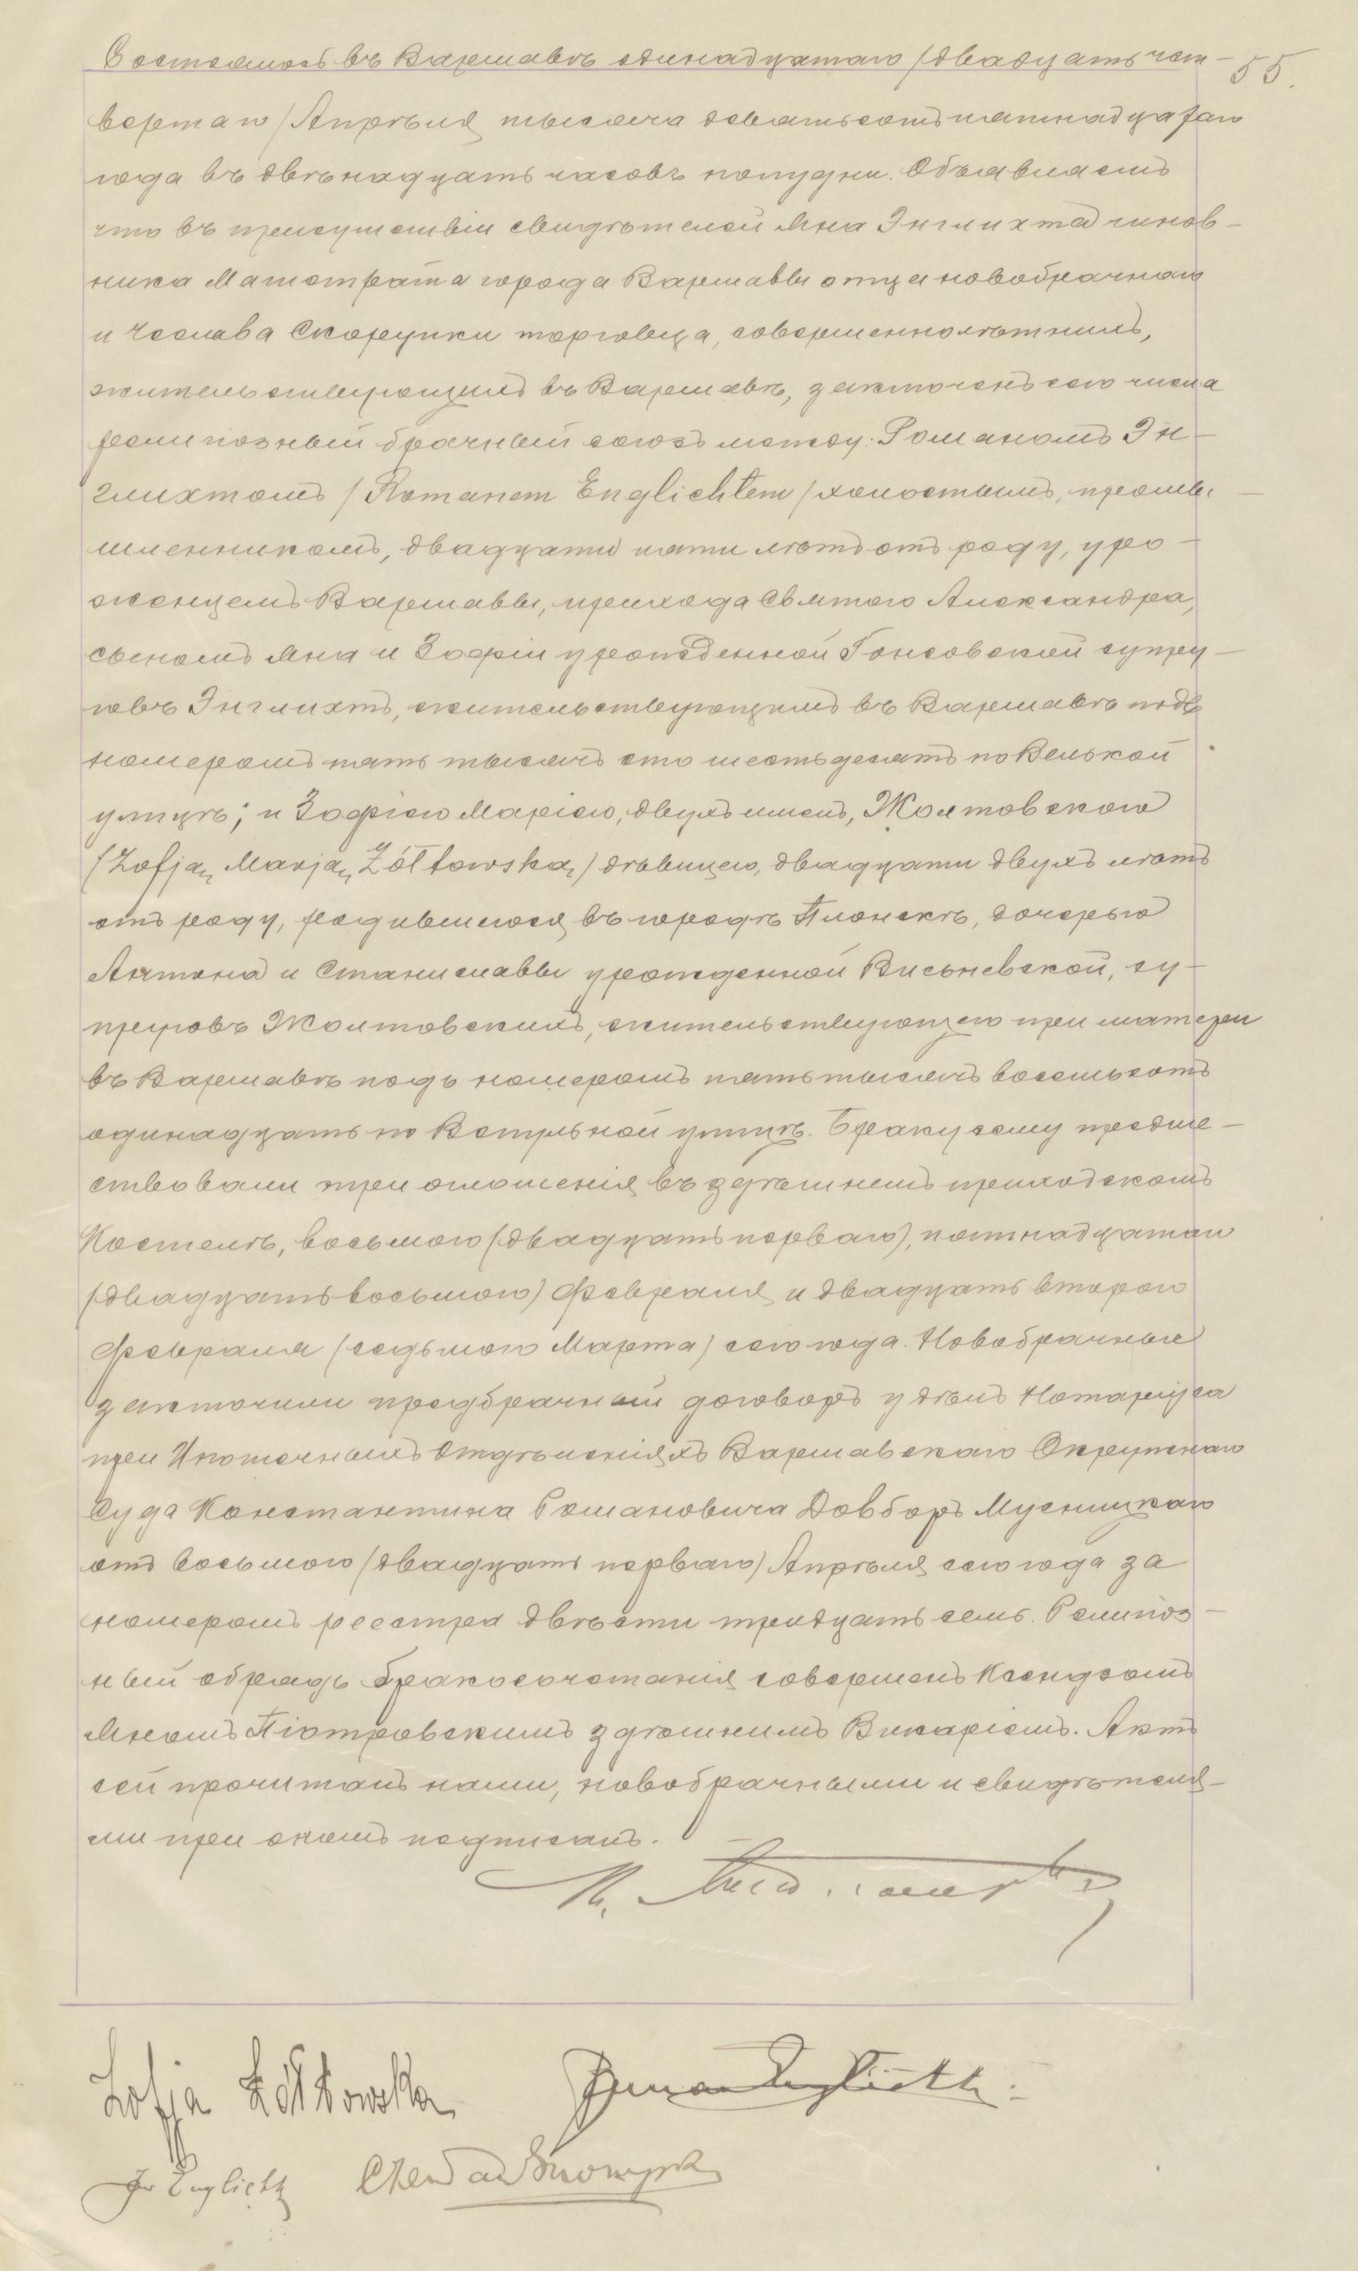 Состоялось въ Варшавѣ одинадцатаго /двадцать чет-
55.
вертаго/ Апрѣля тысяча девятьсотъ пятнадцатаго
года въ двѣнадцать часовъ полудни. Объявляемъ
что въ присутствіи свидѣтелей Яна Энглихта чинов-
ника Магистрата города Варшавы отца новобрачнаго
и Чеслава Скорупки торговца, совершеннолѣтнихъ,
жительствующихъ въ Варшавѣ, заключенъ сего числа
религіозный брачный союзъ между: Романомъ Эн-
глихтомъ /Romanem Englichtem/ холостымъ, промы-
шленникомъ, двадцати пяти лѣтъ отъ роду, уро-
женцемъ Варшавы, прихода Святого Александра,
сыномъ Яна и Зофіи урожденной Гонсовской супру-
говъ Энглихтъ, жительствующимъ въ Варшавѣ подъ
номеромъ пять тысячъ сто шестьдесятъ по Велькой
улицѣ; и Зофіею Маріею, двухъ именъ, Жолтовскою
(Zofją Marją Żółtowską) дѣвицею, двадцати двухъ лѣтъ
отъ роду, родившеюся въ городѣ Плонскѣ, дочерью
Антона и Станиславы урожденной Висьневской, су-
пруговъ Жолтовскихъ, жительствующею при матери
въ Варшавѣ подъ номеромъ пять тысячъ восемьсотъ
одинадцать по Вспульной улицѣ. Браку сему предше-
ствовали три оглашенія въ здѣшнемъ приходскомъ
Костелѣ, восьмого (двадцать перваго), пятнадцатаго
(двадцать восьмого) Февраля и двадцать второго
Февраля (седьмого Марта) сего года. Новобрачные
заключили предбрачный договоръ у дѣлъ Нотаріуса
при Ипотечныхъ Отдѣленіяхъ Варшавскаго Окружнаго
Суда Константина Романовича Довборъ Мусницкаго
отъ восьмого (двадцать перваго) Апрѣля сего года за
номеромъ реестра двѣсти тридцать семь. Религіоз-
ный обрядъ бракосочетанія совершенъ Ксендзомъ
Яномъ Піотровскимъ здѣшнимъ Викаріемъ. Актъ
сей прочитанъ нами, новобрачными и свидѣтеля-
ми при ономъ подписанъ.
Zofja Żółtowska
Roman Englicht
Jan Englicht Czesław Skorupka